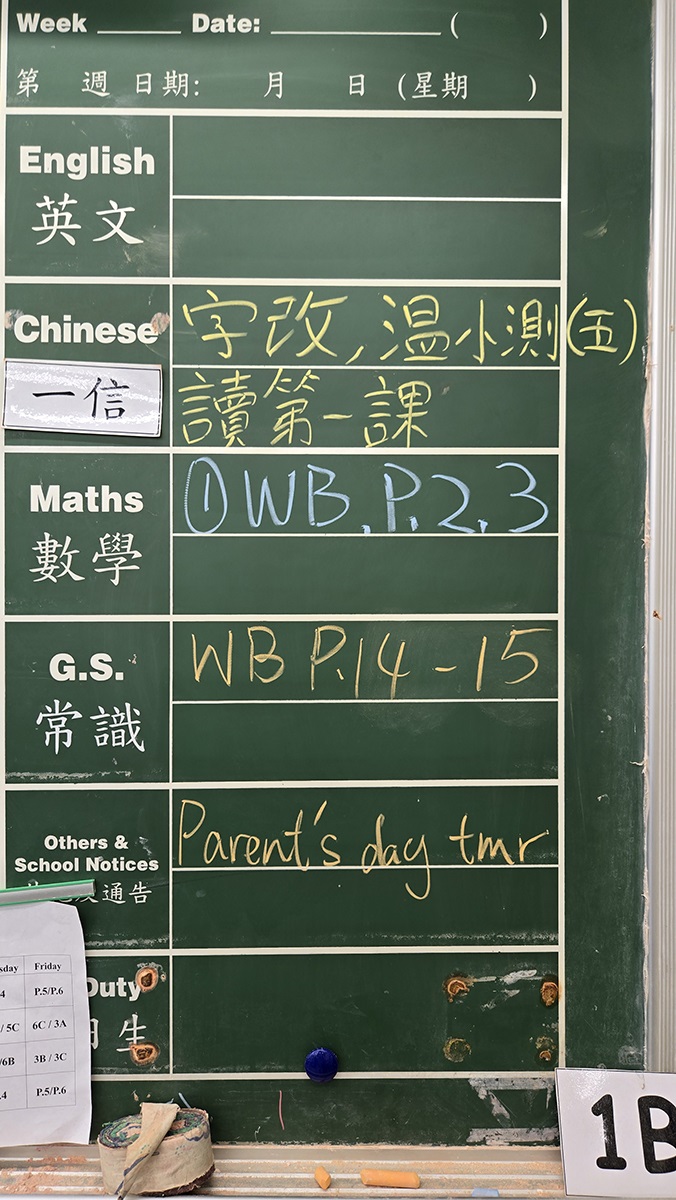 Week ______ Date: ______________ ( )
第 週 日期: 月 日 (星期 )
English
英文
Chinese
字改,温小測(五)
一信
讀第一課
Maths
①WB.P.2,3
數學
G.S.
WB P.14-15
常識
Others &
School Notices
Parent's day tmr
通告
sday Friday
4 P.5/P.6
/ 5C 6C / 3A
/6B 3B / 3C
.4 P.5/P.6
Duty
生
1B